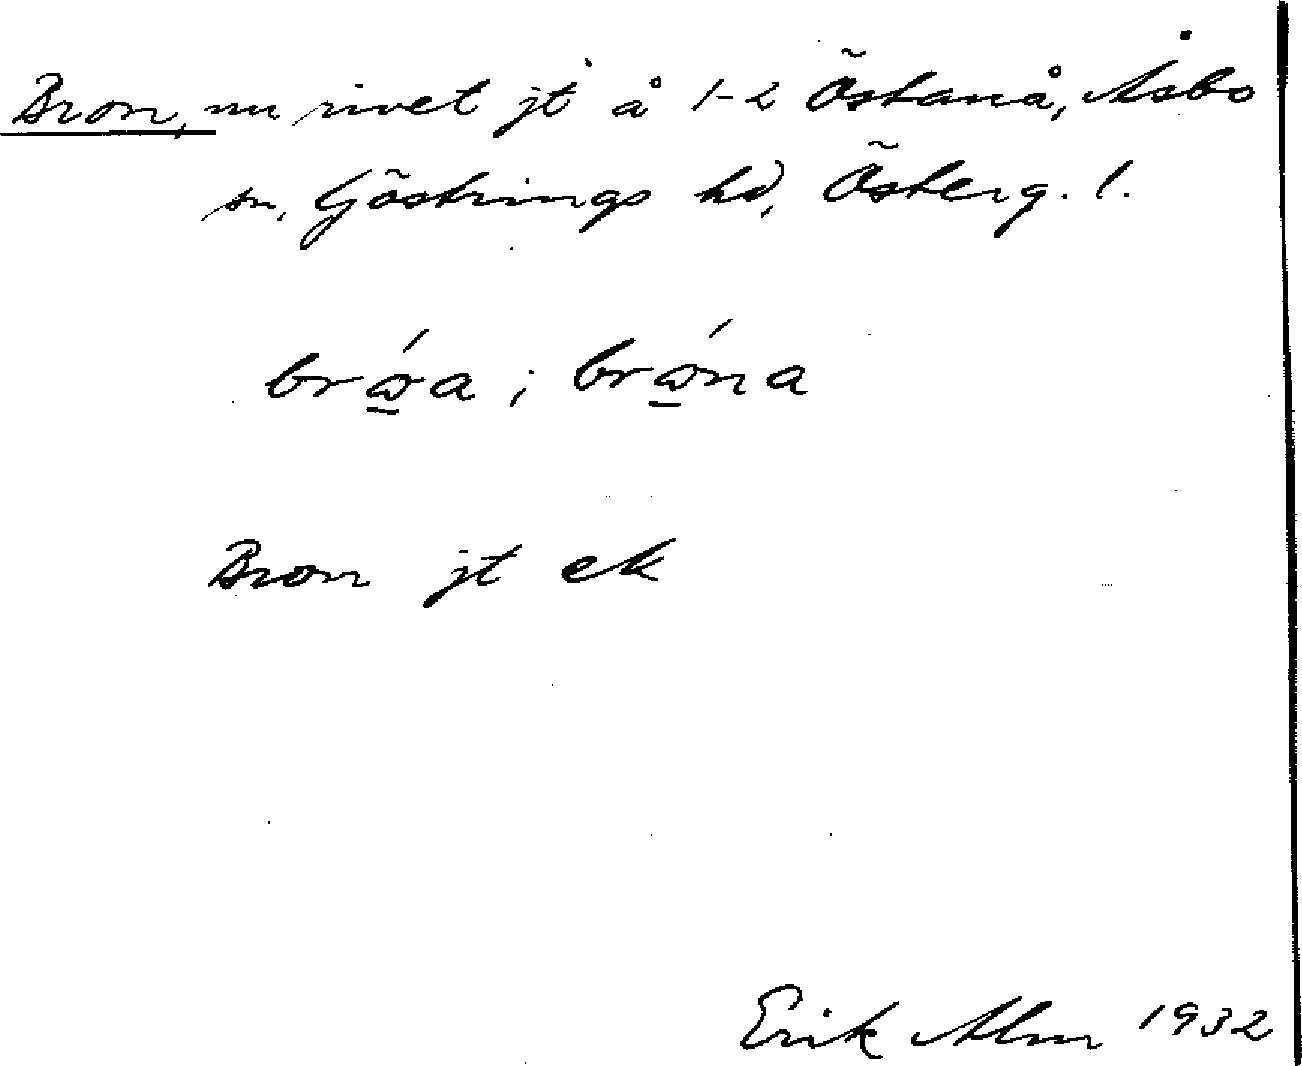 Bron, nu rivet jt å 1-2 Östanå, Åsbo
sn, Göstrings hd, Österg. l.
Bron jt ek
Erik Alm 1932